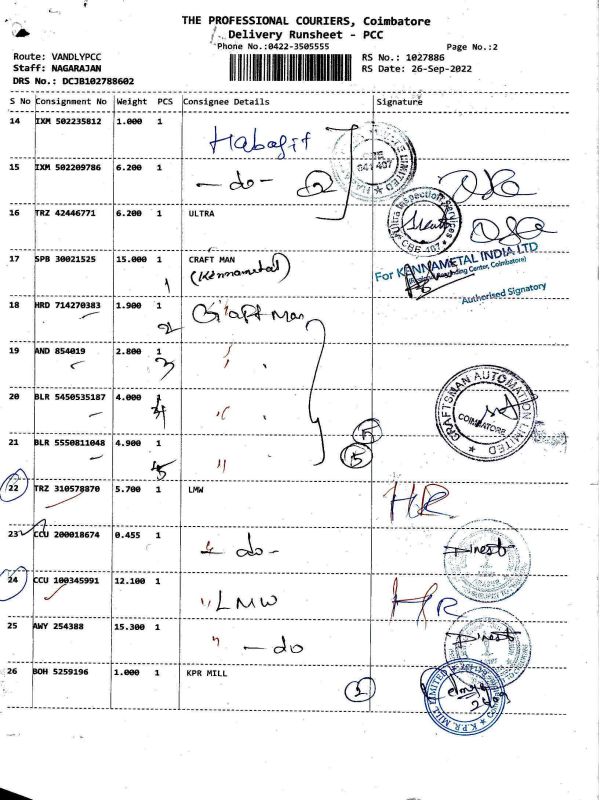 THE PROFESSIONAL COURIERS, Coimbatore
Delivery Runsheet - PCC
Phone No.:0422-3505555
Page No.:2
Route: VANDLYPCC
RS No.: 1027886
Staff: NAGARAJAN
RS Date: 26-Sep-2022
DRS No.: DCJB102788602
S No Consignment No Weight PCS Consignee Details Signature
14 IXM 502235812 1.000 1
15 IXM 502209786 6.200 1 - do - 2
16 TRZ 42446771 6.200 1 ULTRA
Ultra Inspection Services
CBE 407
17 SPB 30021525 15.000 1 CRAFT MAN
(Kennametal)
1
For KENNAMETAL INDIA LTD
Authorised Signatory
18 HRD 714270383 1.900 1 Craft Man
2
19 AND 854019 2.800 1 " "
3
20 BLR 5450535187 4.000 1 "
4
CRAFTSMAN AUTOMATION LIMITED
COIMBATORE
21 BLR 5550811048 4.900 1 "
5 5
5
22 TRZ 310578870 5.700 1 LMW HR
23 CCU 200018674 0.455 1 " - do -
24 CCU 100345991 12.100 1 " LMW HR
25 AWY 254388 15.300 1 " - do
26 BOH 5259196 1.000 1 KPR MILL
K.P.R. MILL LIMITED